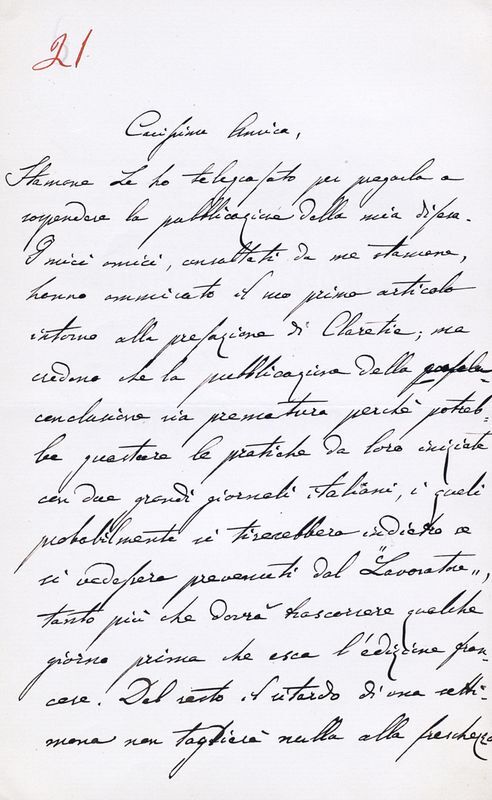 21
Carissima Amica,
Stamane Le ho telegrafato per pregarla a
sospendere la pubblicazione della mia difesa.
I miei amici, consultati da me stamane,
hanno ammirato il suo primo articolo
intorno alla prefazione di Claretie; ma
credono che la pubblicazione della
conclusione sia prematura perchè potreb-
be guastare le pratiche da loro iniziate
con due grandi giornali italiani, i quali
probabilmente si tirerebbero indietro se
si vedessero prevenuti dal "Lavoratore",
tanto più che dovrà trascorrere qualche
giorno prima che esca l'edizione fran-
cese. Del resto il ritardo di una setti-
mana non toglierà nulla alla freschezza